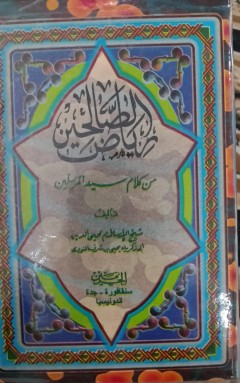 رياض الصالحين
من كلام سيد المرسلين
تأليف
شيخ الإسلام محيي الدين
أبي زكريا يحيى بن شرف النووي
الحرمين
سنقافورة - جدة
اندونيسيا